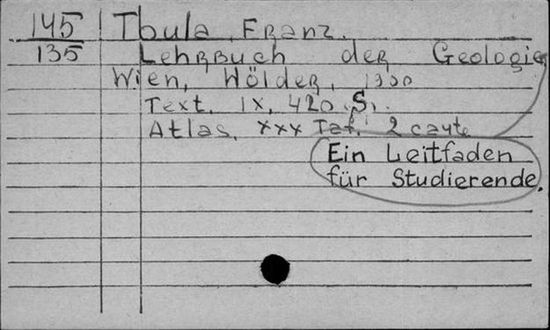 145 Toula Franz.
135 Lehrbuch der Geologie
Wien, Hölder, 1900
Text. IX, 420 S.
Atlas. XXX Taf. 2 carte
Ein Leitfaden
für Studierende.